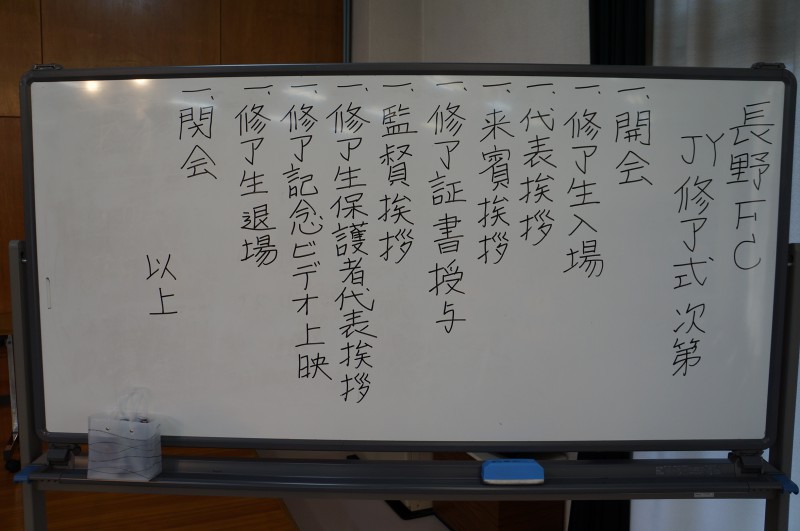 長野FC
JY修了式次第
一、開会
一、修了生入場
一、代表挨拶
一、来賓挨拶
一、修了証書授与
一、監督挨拶
一、修了生保護者代表挨拶
一、修了記念ビデオ上映
一、修了生退場
一、閉会
以上